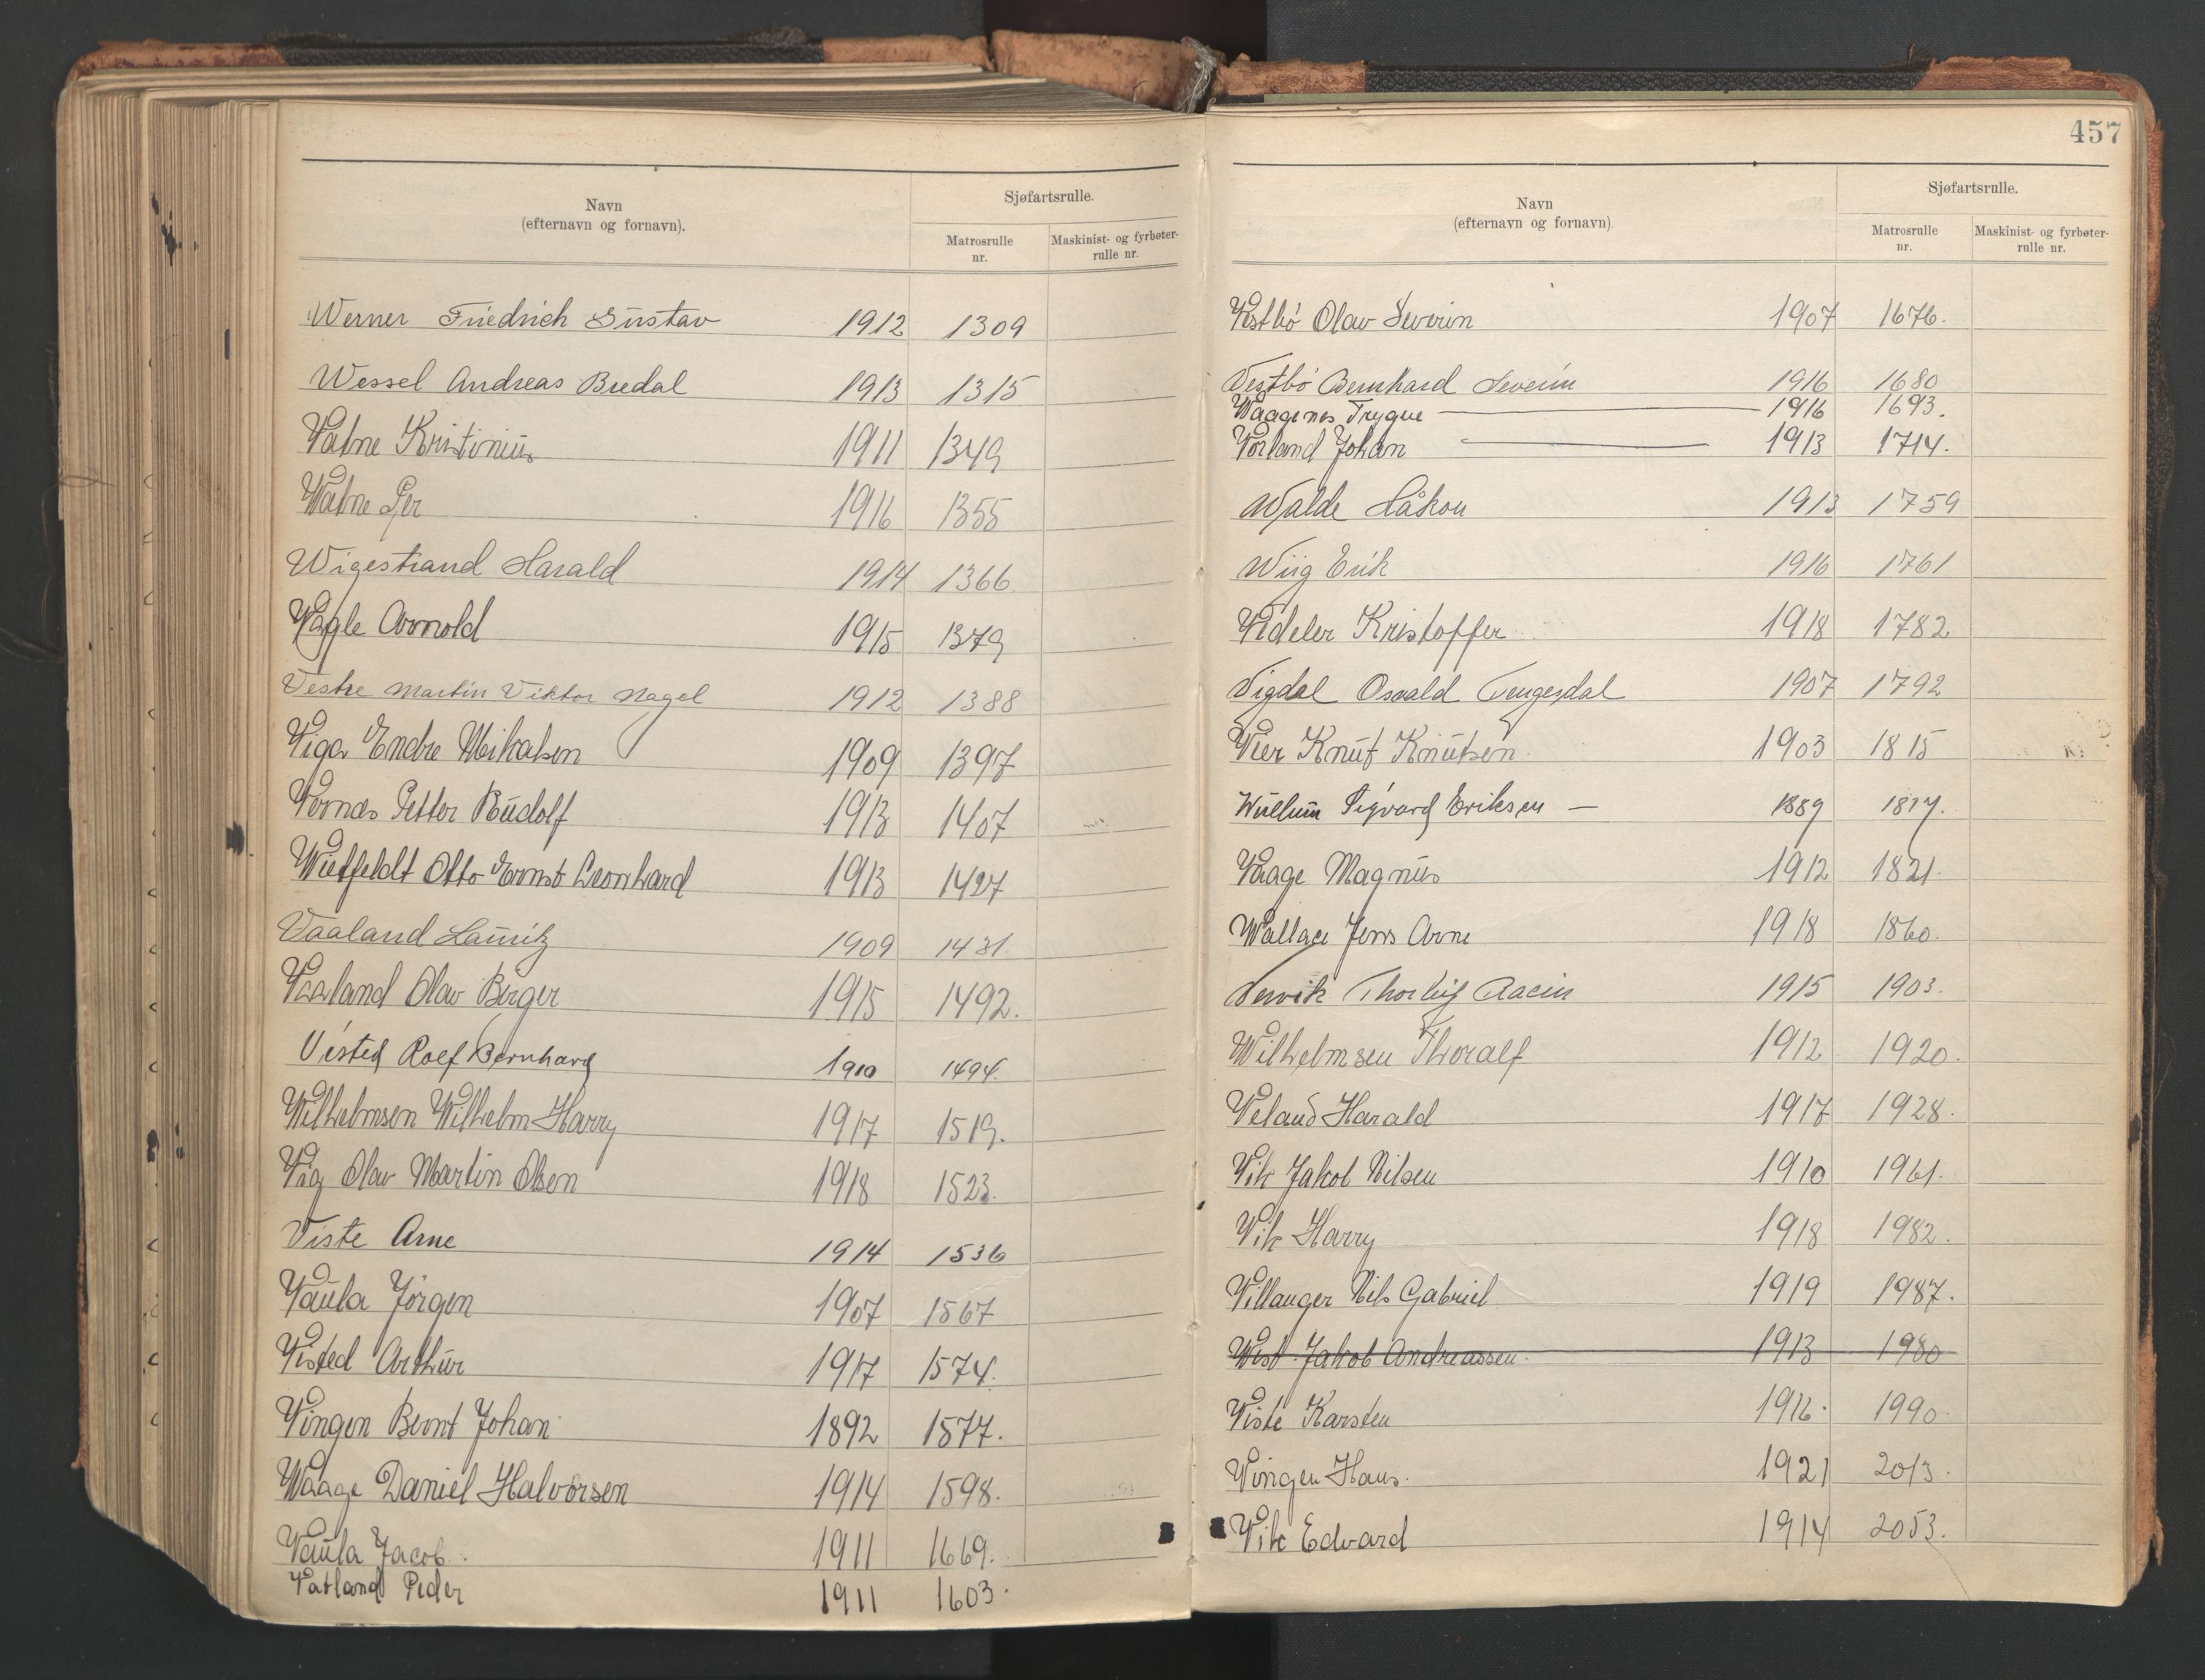 Navn
(efternavn og fornavn).
Sjøfartsrulle.
Matrosrulle nr.
Maskinist- og fyrbøter-rulle nr.
Werner Friedrich Gustav 1912 1309
Wessel Andreas Bredal 1913 1315
Vatne Kristinius 1911 1349
Watne Per 1916 1355
Wigestrand Harald 1914 1366.
Vagle Arnold 1915 1379
Vestre Martin Viktor Nagel 1912 1388
Viga Endre Mikalsen 1909 1397
Vornæs Petter Rudolf 1913 1407
Wietfeldt Otto Ernst Leonhard 1913 1427
Vaaland Lauritz 1909 1431
Vaaland Olav Birger 1915 1492.
Visted Rolf Bernhard 1910 1494.
Wilhelmsen Wilhelm Harry 1917 1519.
Våg Olav Martin Olsen 1918 1523.
Viste Arne 1914 1536
Vaula Jørgen 1907 1567
Visted Arthur 1917 1574.
Vingen Bernt Johan 1892 1577.
Waage Daniel Halvorsen 1914 1598.
Vaula Jacob. 1911 1669.
Vatland Peder 1911 1603.
457
Navn
(efternavn og fornavn).
Sjøfartsrulle.
Matrosrulle nr.
Maskinist- og fyrbøter-rulle nr.
Vestbø Olav Severin 1907 1676.
Vestbø Bernhard Severin 1916 1680
Waagenes Trygve 1916 1693.
Vorland Johan 1913 1714.
Walde Håkon 1913 1759
Wiig Erik 1916 1761
Vedeler Kristoffer 1918 1782
Vigdal Osvald Tengesdal 1907 1792
Vier Knut Knutsen. 1903 1815
Wullum Sigvard Eriksen — 1889 1817.
Vaage Magnus 1912 1821.
Wallace Jens Arne 1918 1860.
Vervik Thorleif Racin 1915 1903.
Wilhelmsen Thoralf 1912 1920.
Veland Harald 1917 1928.
Vik Jakob Nilsen 1910 1961.
Vik Harry 1918 1982.
Villanger Nils Gabriel 1919 1987.
West Jakob Andreassen. 1913 1980
Viste Karsten 1916. 1990.
Vingen Hans. 1921 2013.
Vik Edvard 1914 2053.